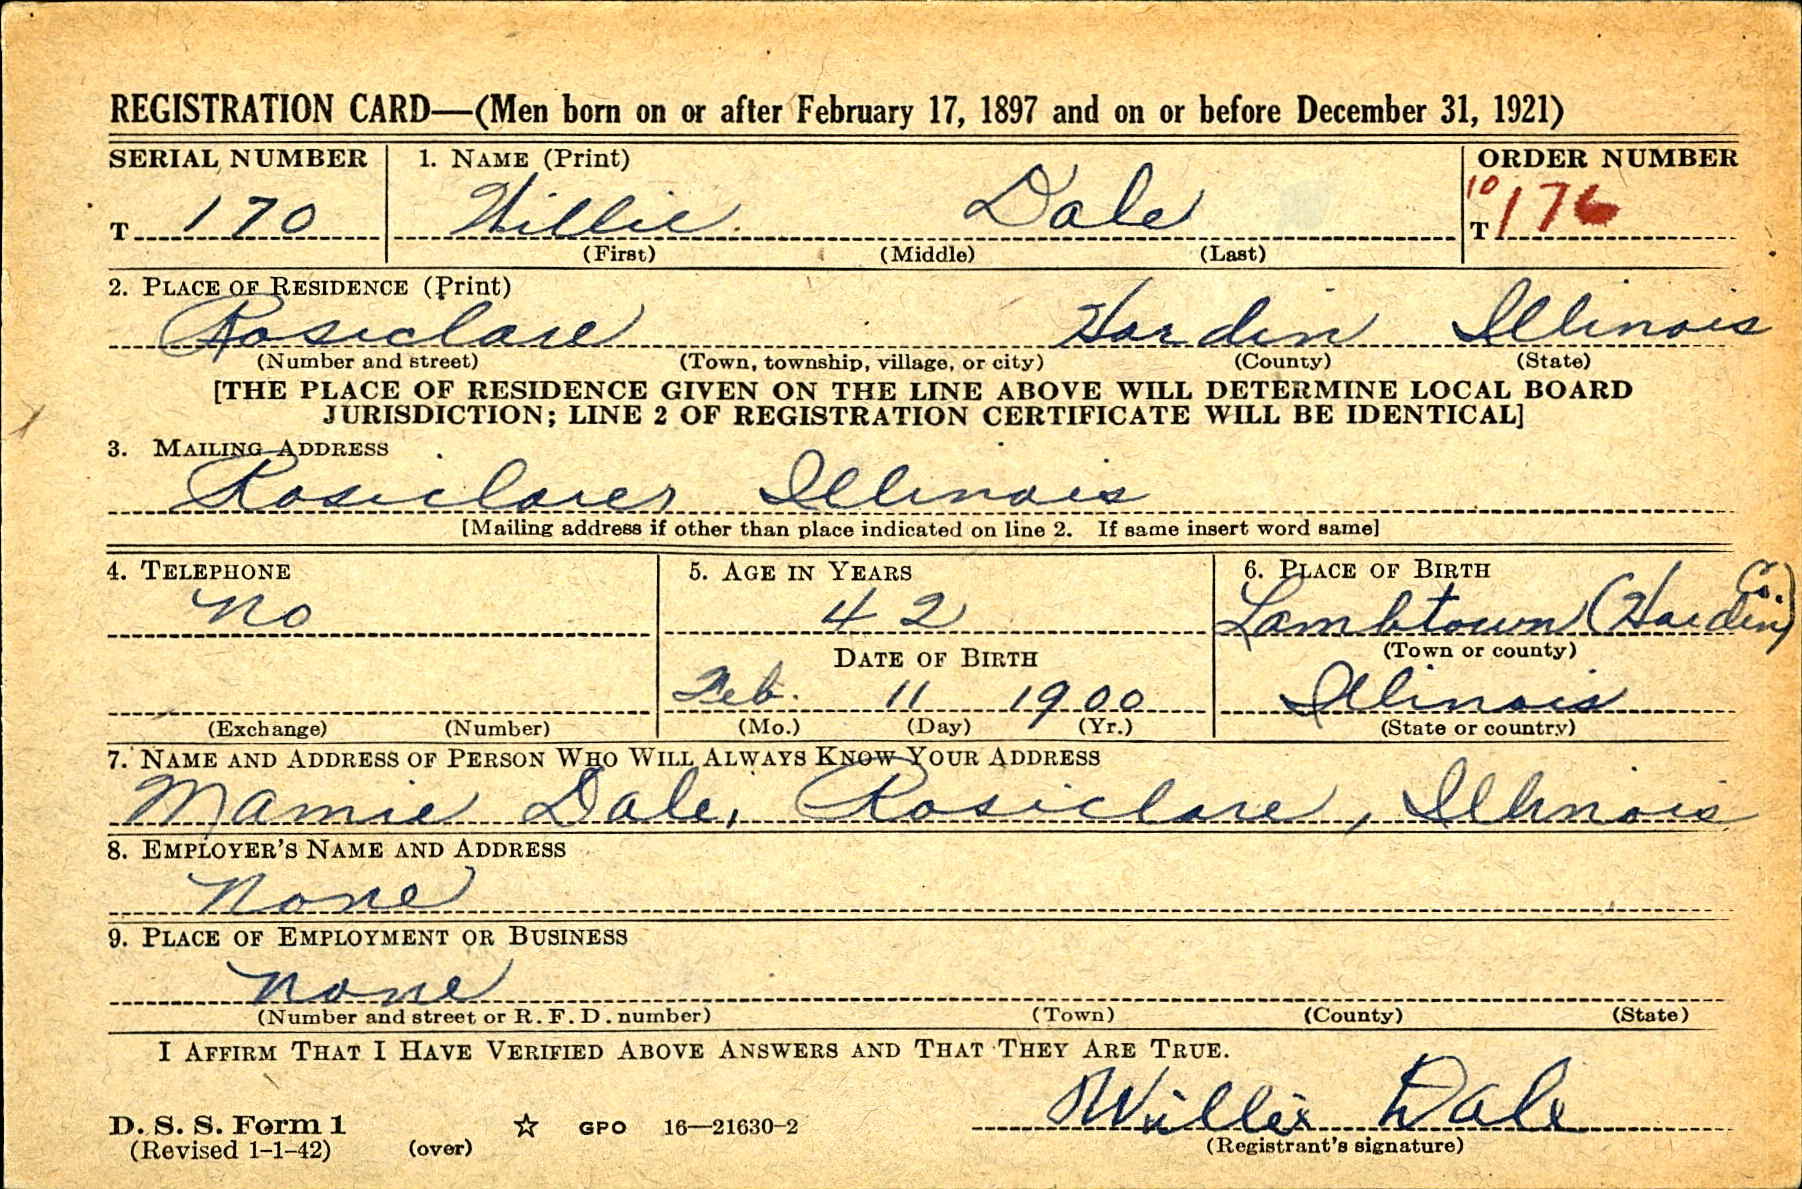 REGISTRATION CARD—(Men born on or after February 17, 1897 and on or before December 31, 1921)
SERIAL NUMBER 1. NAME (Print) ORDER NUMBER
T 170 Willie Dale 10 T 176
(First) (Middle) (Last)
2. PLACE OF RESIDENCE (Print)
Rosiclare Hardin Illinois
(Number and street) (Town, township, village, or city) (County) (State)
[THE PLACE OF RESIDENCE GIVEN ON THE LINE ABOVE WILL DETERMINE LOCAL BOARD
JURISDICTION; LINE 2 OF REGISTRATION CERTIFICATE WILL BE IDENTICAL]
3. MAILING ADDRESS
Rosiclare, Illinois
[Mailing address if other than place indicated on line 2. If same insert word same]
4. TELEPHONE 5. AGE IN YEARS 6. PLACE OF BIRTH
No 42 Lambtown (Hardin Co.)
(Town or county)
DATE OF BIRTH
Feb. 11 1900 Illinois
(Exchange) (Number) (Mo.) (Day) (Yr.) (State or country)
7. NAME AND ADDRESS OF PERSON WHO WILL ALWAYS KNOW YOUR ADDRESS
Mamie Dale, Rosiclare, Illinois
8. EMPLOYER'S NAME AND ADDRESS
None
9. PLACE OF EMPLOYMENT OR BUSINESS
None
(Number and street or R. F. D. number) (Town) (County) (State)
I AFFIRM THAT I HAVE VERIFIED ABOVE ANSWERS AND THAT THEY ARE TRUE.
Willie Dale
D. S. S. Form 1 ☆ GPO 16—21630-2
(Revised 1-1-42) (over) (Registrant's signature)